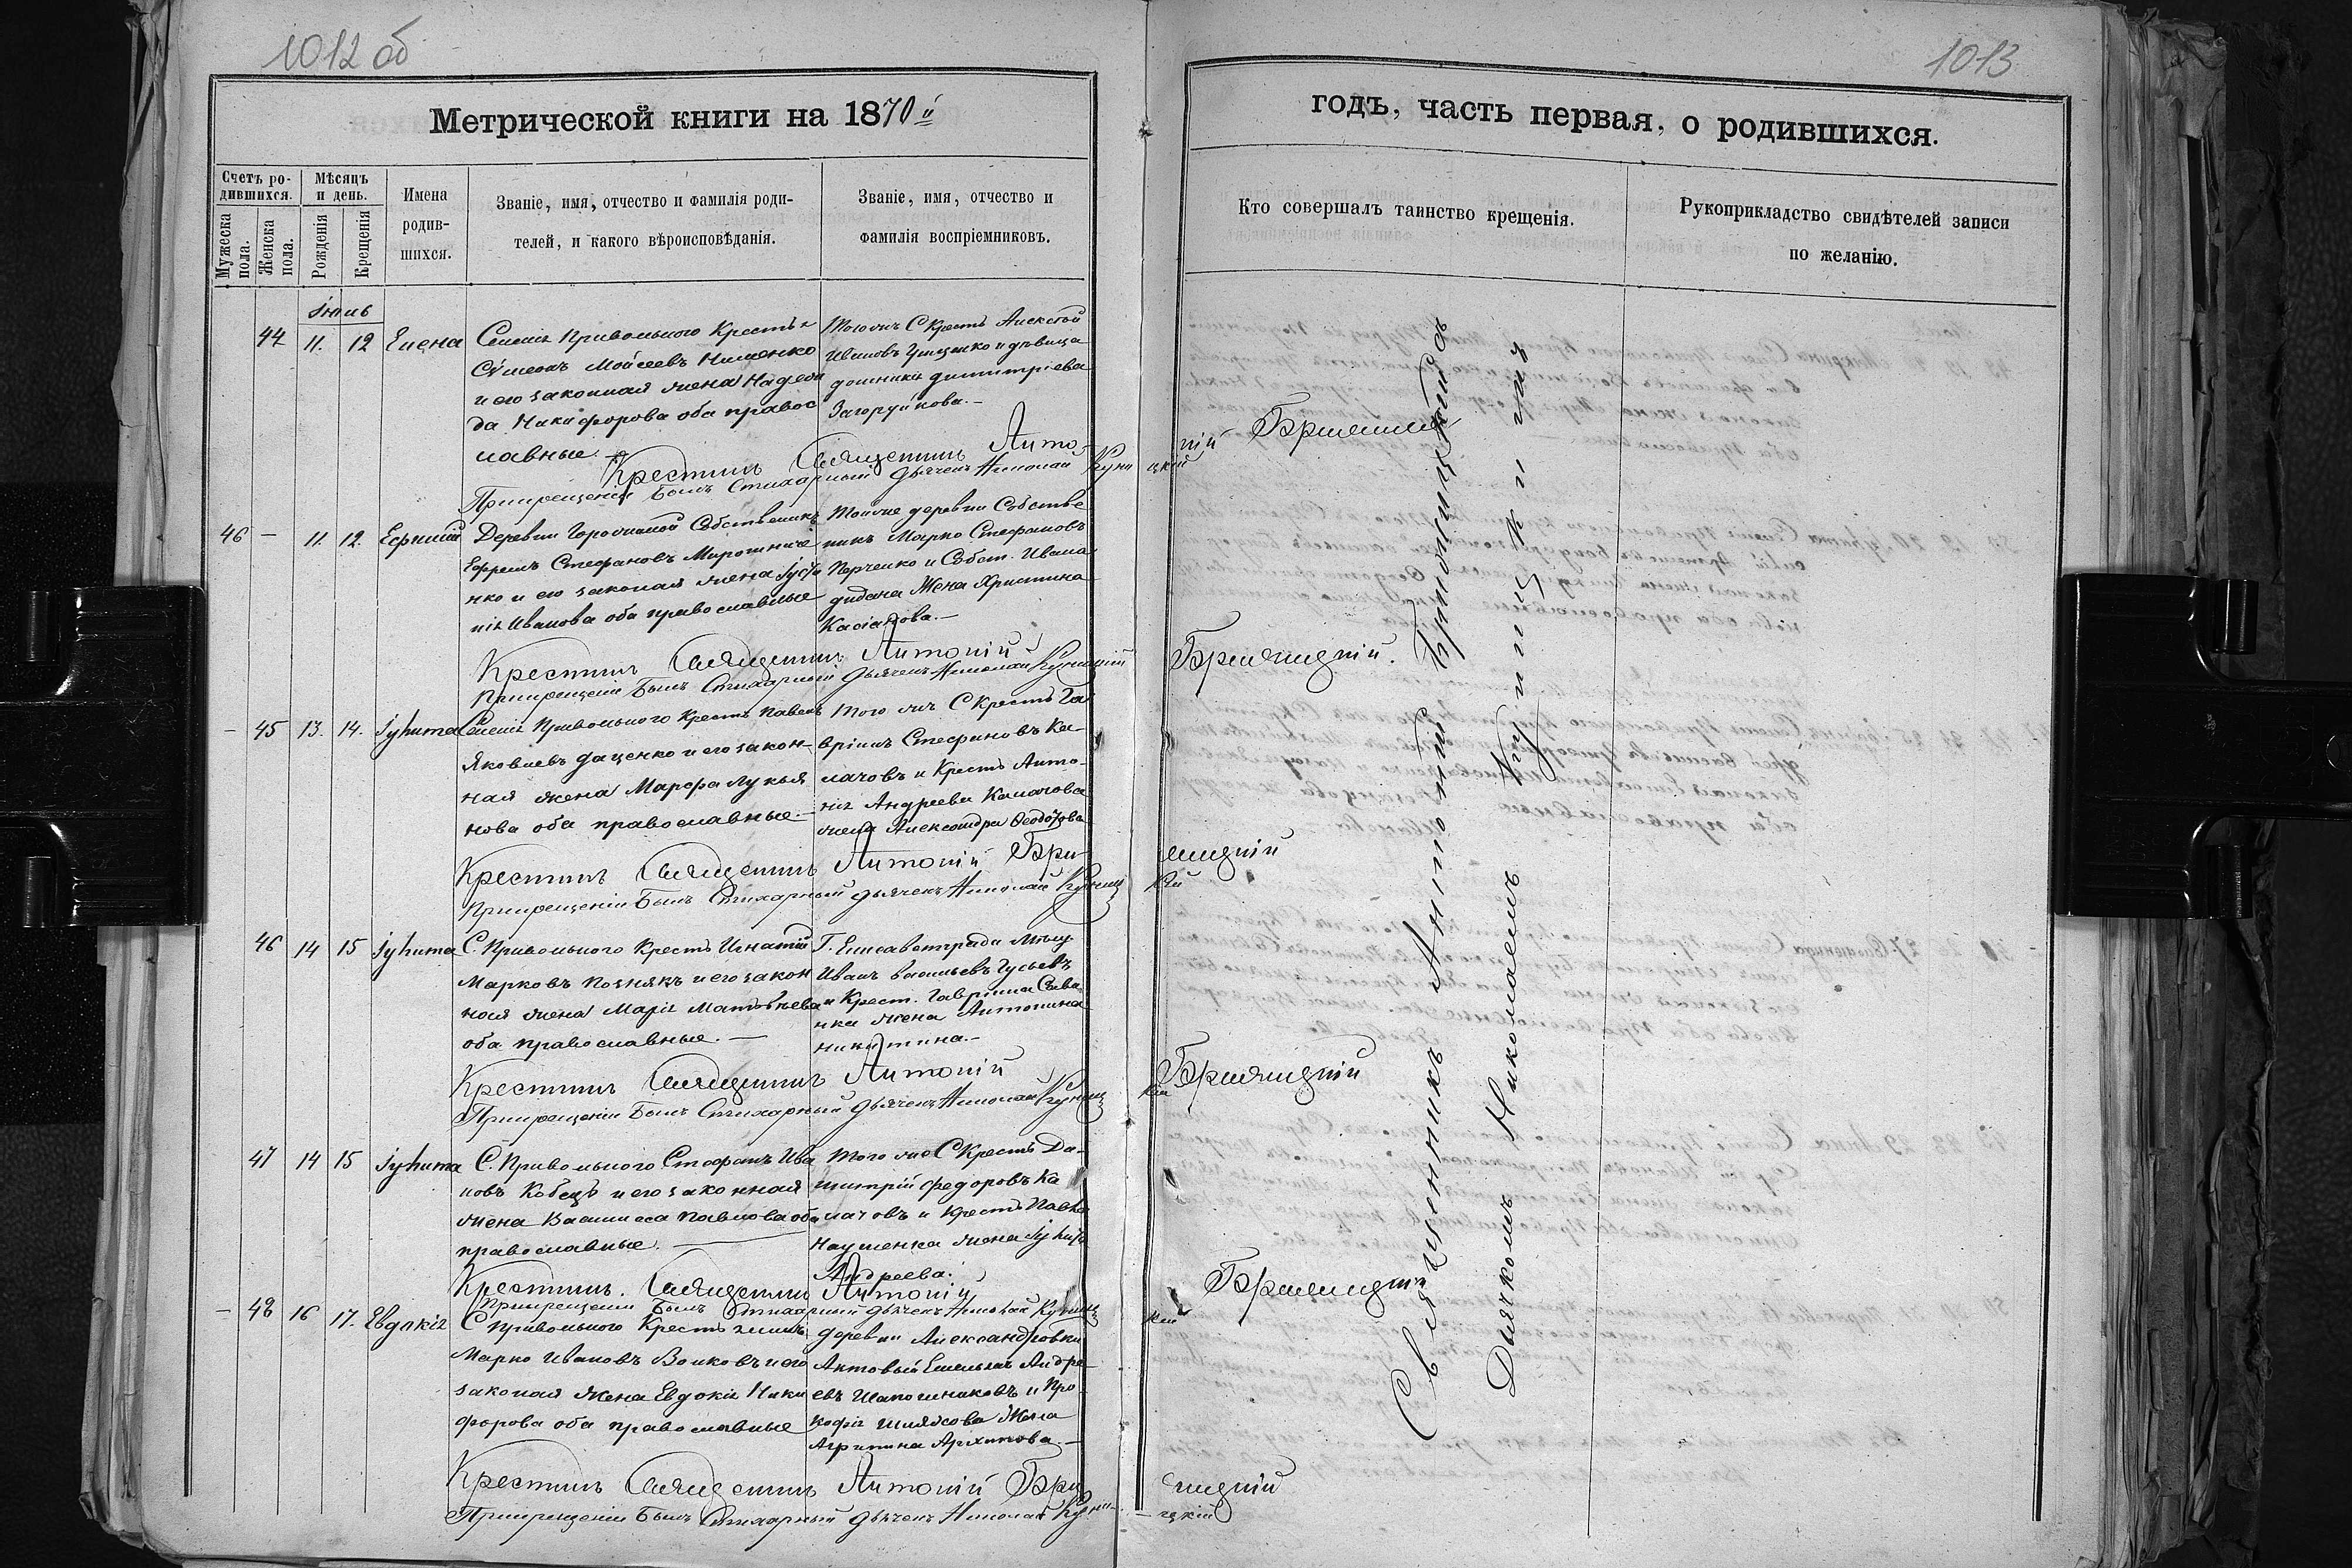 1012 об
1013
Метрической книги на 1870й
годъ, часть первая, о родившихся.
Счетъ родившихся.
Мужеска пола.
Женска пола.
Мѣсяцъ и день.
Рожденія
Крещенія
Имена родив-
шихся.
Званіе, имя, отчество и фамилія роди-
телей, и какого вѣроисповѣданія.
Званіе, имя, отчество и
фамилія воспріемниковъ.
Кто совершалъ таинство крещенія.
Рукоприкладство свидѣтелей записи
по желанію.
44 11. 12 Елена
Привольного Крестья
Моисеевъ
и его законная жена Надеж
да Никифорова оба правос
лавные.
Тогожъ С Крест Алексѣй
Ивановъ Гриценко и дѣвица
димитріева
Загоруйкова.
Крестилъ Священник Анто-
ній
Прикрещеніи былъ Стихарный Дьячекъ Николай Куниц
кій
46 - 11. 12.
Деревни Собственикъ
Ефремъ Стефановъ Мирошниче
нко и его законая жена
Иванова оба православные
Тойже деревни Собстве
никъ Марко Стефановъ
и Собст. Ивана
Жена Христина
Касіанова.
Крестилъ Священник Антоній
Прикрещеніи былъ Стихарный Дьячекъ Николай Куницкій
- 45 13. 14. Іулита
Привольного Крест Павелъ
Яковлевъ Даценко и его закон-
ная жена Марфа Лукья
нова оба православные.
Того жъ С Крест Га
вріилъ Стефановъ Ка-
лачовъ и Крест Анто-
Андреева Калачова
жена Александра Феодотова
Крестилъ Священник Антоній
Прикрещеніи былъ Стихарный Дьячекъ Николай Куниц
кій
46 14 15 Іулита
С. Привольного Крест Игнатій
Марковъ Познякъ и его закон
ная жена Марія Матвѣева
оба православные.
Г. Елисаветграда
Иванъ Васильевъ Гусьевъ
и Крест. Гавріила Сава
нка жена Антонина
Никитина.
Крестилъ Священник Антоній
Прикрещеніи былъ Стихарный Дьячекъ Николай Куниц
кій
47 14 15 Іулита
С. Привольного Стефанъ Ива
новъ Кобецъ и его законная
жена Василиса Павлова оба
православные.
Того же С Крест Ди-
митрій Федоровъ Ка
лачовъ и Крест Павла
Науменка жена
Андреева.
Крестилъ. Священник Антоній
Прикрещеніи былъ Стихарный Дьячекъ Николай Куниц
кій
- 48 16 17. Евдокія
С Привольного Крест
Марко Ивановъ Волковъ и его
законая жена Евдокія Ники
форова оба православные
деревни Александровки
Емельянъ Андре-
евъ Шапошниковъ и Про
кофія Жена
Агрипина Архипова.
Крестилъ Священник Антоній
Прикрещеніи былъ Стихарный Дьячекъ Николай Куни-
цкій
Священникъ Антоній
Дьячкомъ Николаемъ Куницкимъ